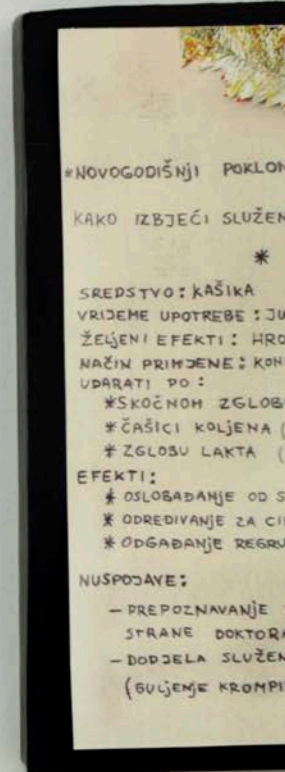 *NOVOGODIŠNJI POKLON
KAKO IZBJEĆI SLUŽEN
*
SREDSTVO: KAŠIKA
VRIJEME UPOTREBE: JU
ŽELJENI EFEKTI: HRO
NAČIN PRIMJENE: KON
UDARATI PO:
*SKOČNOM ZGLOBU
*ČAŠICI KOLJENA (
*ZGLOBU LAKTA (
EFEKTI:
* OSLOBAĐANJE OD S
* ODREĐIVANJE ZA CI
* ODGAĐANJE REGRU
NUSPOJAVE:
- PREPOZNAVANJE
STRANE DOKTORA
- DODJELA SLUŽEN
(GULJENJE KROMPI